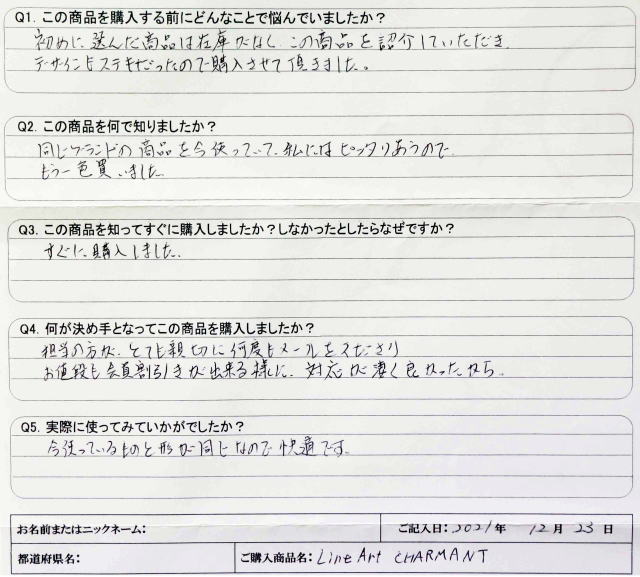 Q1. この商品を購入する前にどんなことで悩んでいましたか？
初めに選んだ商品は在庫がなく、この商品を紹介していただき、
デザインもステキだったので購入させて頂きました。
Q2. この商品を何で知りましたか？
同じブランドの商品を今使っていて、私にはピッタリあうので、
もう一色買いました。
Q3. この商品を知ってすぐに購入しましたか？しなかったとしたらなぜですか？
すぐに購入しました。
Q4. 何が決め手となってこの商品を購入しましたか？
担当の方が、とても親切に何度もメールを下ださり
お値段も会員割引きが出来る様に、対応が凄く良かったから。
Q5. 実際に使ってみていかがでしたか？
今使っているものと形が同じなので快適です。
お名前またはニックネーム：
ご記入日：2021年 12月 23日
都道府県名：
ご購入商品名：Line Art CHARMANT